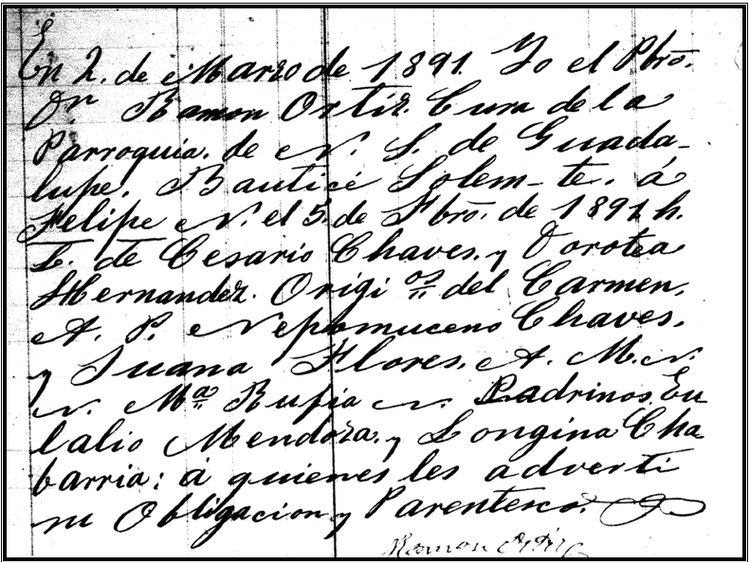 En 2. de Marzo de 1891. Yo el Pbro.
Dr. Ramon Ortiz. Cura de la
Parroquia. de N. S. de Guada-
lupe. Bauticé Solem-te. á
Felipe N. el 5. de Fbro. de 1891 h.
L. de Cesario Chaves. y Dorotea
Hernandez. Origi os del Carmen.
A. P. Nepomuceno Chaves.
y Juana Flores. A. M. N.
N. Ma Rufia N. Padrinos. Eu
lalio Mendoza. y Longina Cha
barria: á quienes les adverti
su Obligacion y Parentesco.
Ramon Ortiz